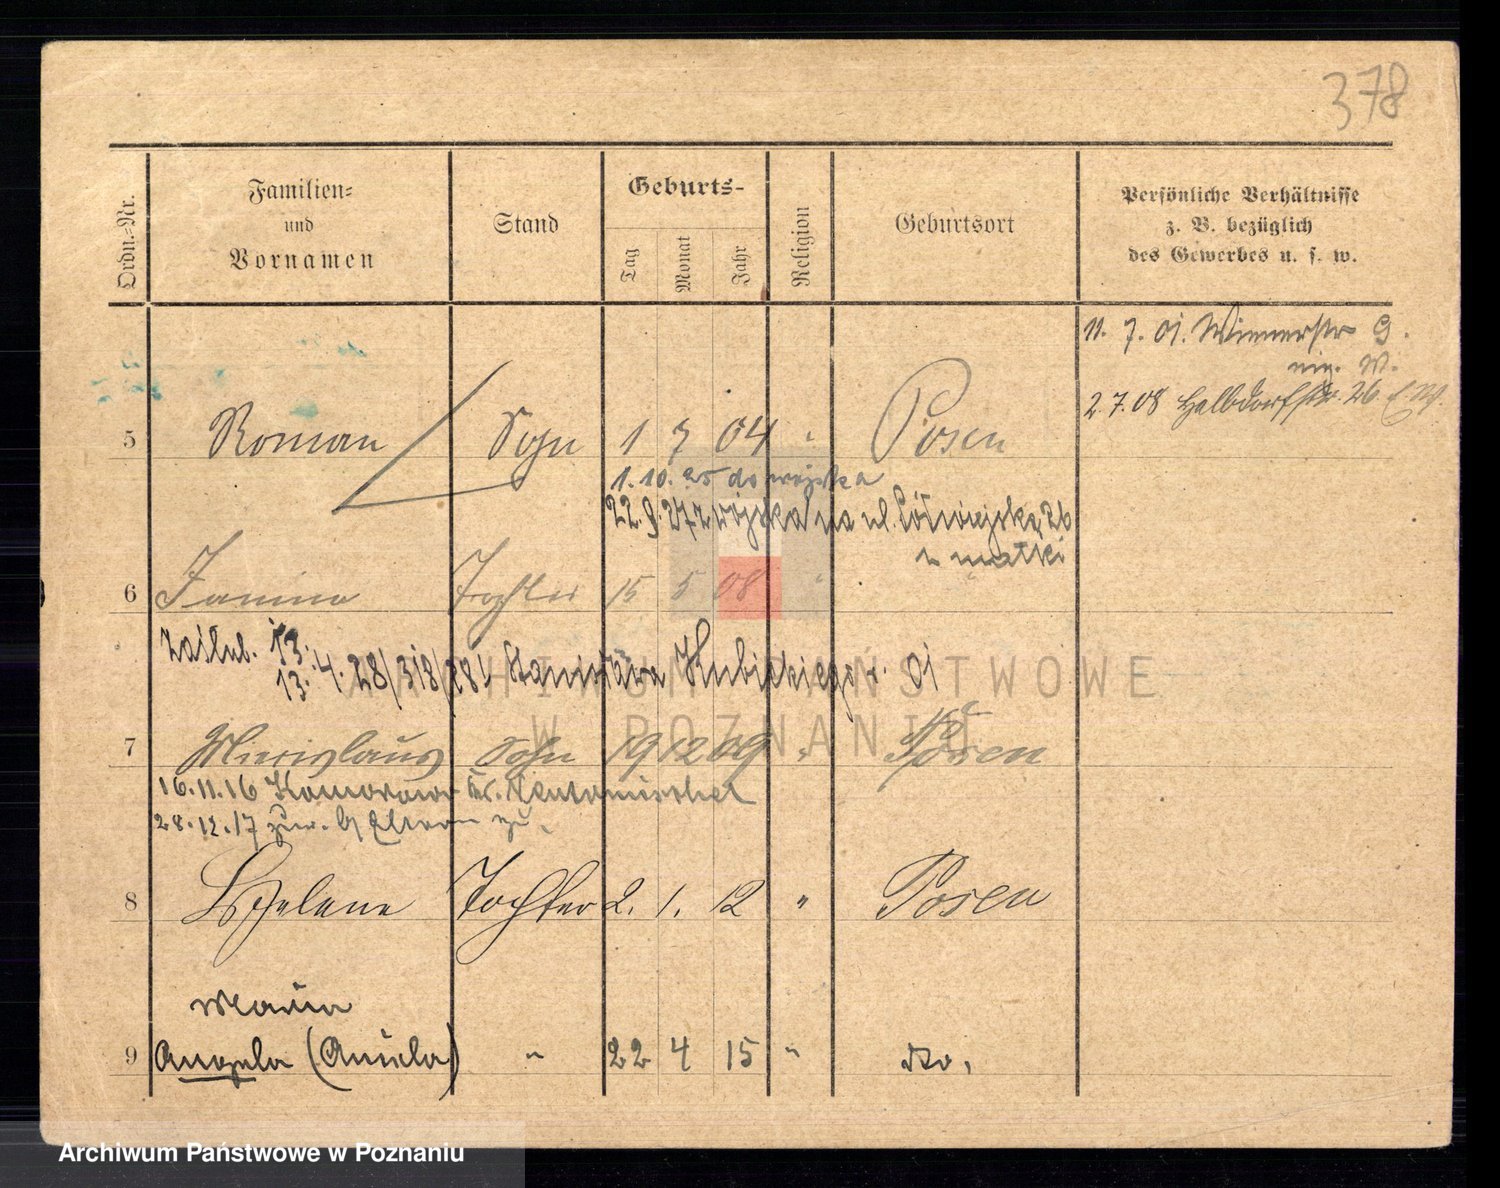 378
Ordn.-Nr.
Familien-
und
Vornamen
Stand
Geburts-
Tag
Monat
Jahr
Religion
Geburtsort
Persönliche Verhältnisse
z. B. bezüglich
des Gewerbes u. s. w.
11. 7. 01. Wienerstr 9.
2.7.08 Halbdorfstr. 26
5 Roman Sohn 1 7 04 " Posen
1.10.25 do wojska
22.9.27 z wojska na ul. Półwiejską 26
u matki
6 Janina Tochter 15 5 08 "
13.
13.4.28/318/28/ Stanisława Kubickiego
ARCHIWUM PAŃSTWOWE
W POZNANIU
7 Miecislaus Sohn 19 12 09 " Posen
16.11.16 Komorowo Kr. Neutomischel
28.12.17 zur. Eltern zu.
8 Helene Tochter 2. 1. 12 " Posen
Maria
9 Angela (Aniela) " 22 4 15 " do.
Archiwum Państwowe w Poznaniu